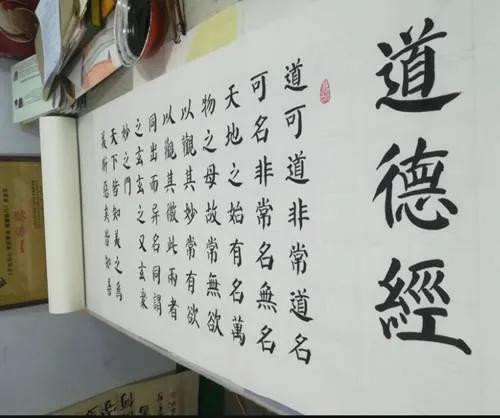 道德經
道可道非常道名
可名非常名無名
天地之始有名萬
物之母故常無欲
以觀其妙常有欲
以觀其徼此兩者
同出而异名同謂
之玄玄之又玄衆
妙之門
天下皆知美之為
美斯惡矣皆知善